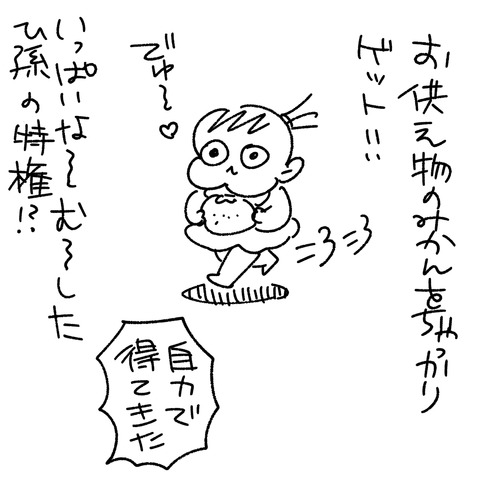 お供え物のみかんをちゃっかり
ゲット!!
でゅ〜♡
ニョニョ
いっぱいな〜む〜した
ひ孫の特権!?
自力で
得てきた